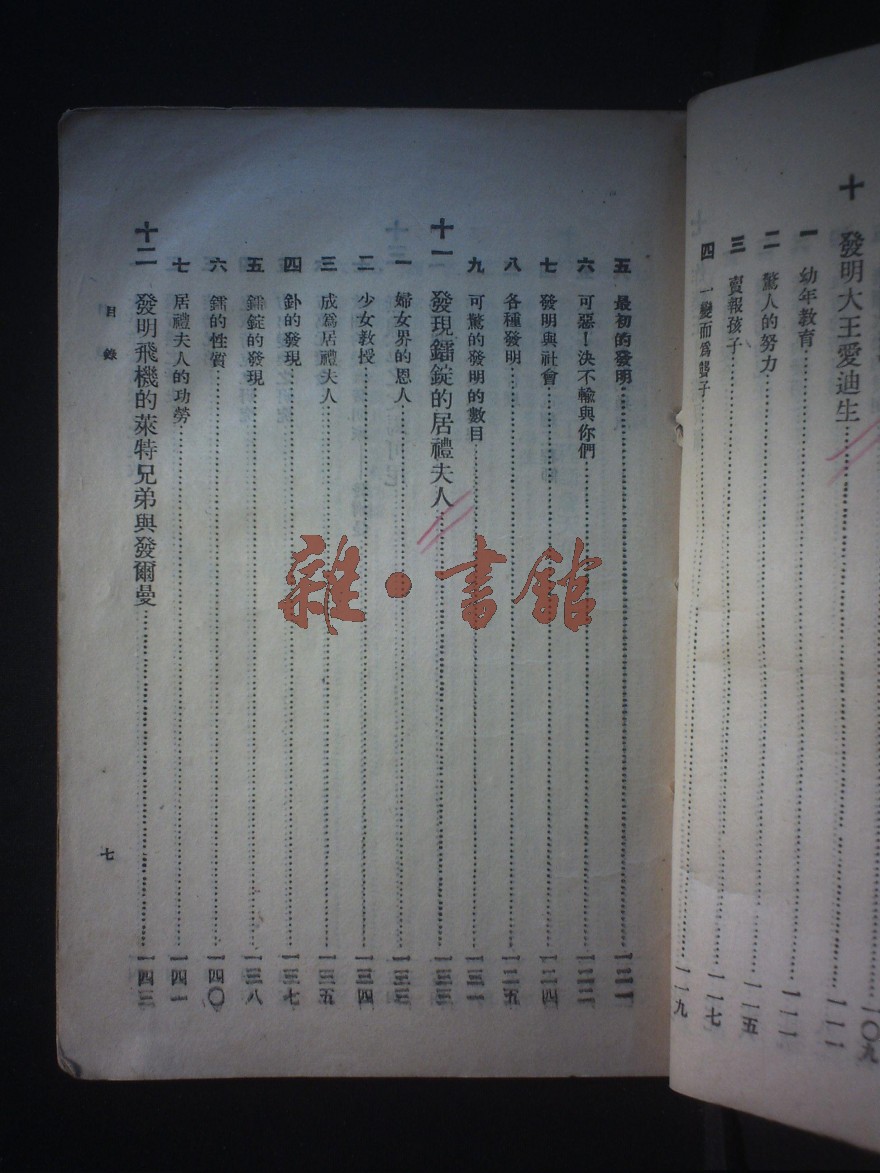 十　發明大王愛迪生……一〇九
一　幼年教育……一一一
二　驚人的努力……一一一
三　賣報孩子……一一五
四　一變而爲聾子……一一七
一一九
五　最初的發明……一二一
六　可惡！決不輸與你們……一二二
七　發明與社會……一二四
八　各種發明……一二五
九　可驚的發明的數目……一三一
十一　發現鐳錠的居禮夫人……一三三
一　婦女界的恩人……一三三
二　少女教授……一三四
三　成爲居禮夫人……一三五
四　釙的發現……一三七
五　鐳錠的發現……一三八
六　鐳的性質……一四〇
七　居禮夫人的功勞……一四一
十二　發明飛機的萊特兄弟與發爾曼……一四三
目錄
七
雜·書館